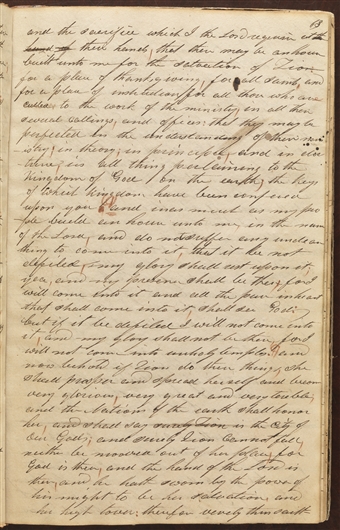 63
and the sacrifice which I the Lord require at the
hand of there hands, that ther may be an house
built unto me for the salvation of Zion
for a place of thanksgiving, for all saints, and
for a place of instruction for all those who are
called to the work of the ministry, in all their
several callings, and offices; that they may be
perfected in the understanding of their min
istry; in theory; in principle and in doc
trine; in all things pertaining to the
Kingdom of God on the earth; the keys
of which kingdom have been confered
upon you and inasmuch as my peo
ple build an house unto me, in the name
of the Lord, and do not suffer any unclean
thing to come into it, that it be not
defiled, my glory shall rest upon it;
yea, and my presence shall be there, for I
will come into it and all the pure in heart
that shall come into it shall see God;
but if it be defiled I will not come into
it, and my glory shall not be there, for I
will not come into unholy temples; and
now behold if Zion do these things, she
shall prosper and spread herself and become
very glorious, very great and very terrible;
and the Nations of the earth shall honor
her, and shall say surely Zion is the City of
our God; and surely Zion cannot fall,
neither be mooved out of her place, for
God is there, and the hand of the Lord is
there, and he hath sworn by the power of
his might to be her salvation, and
her high tower; therefore verely thus saith